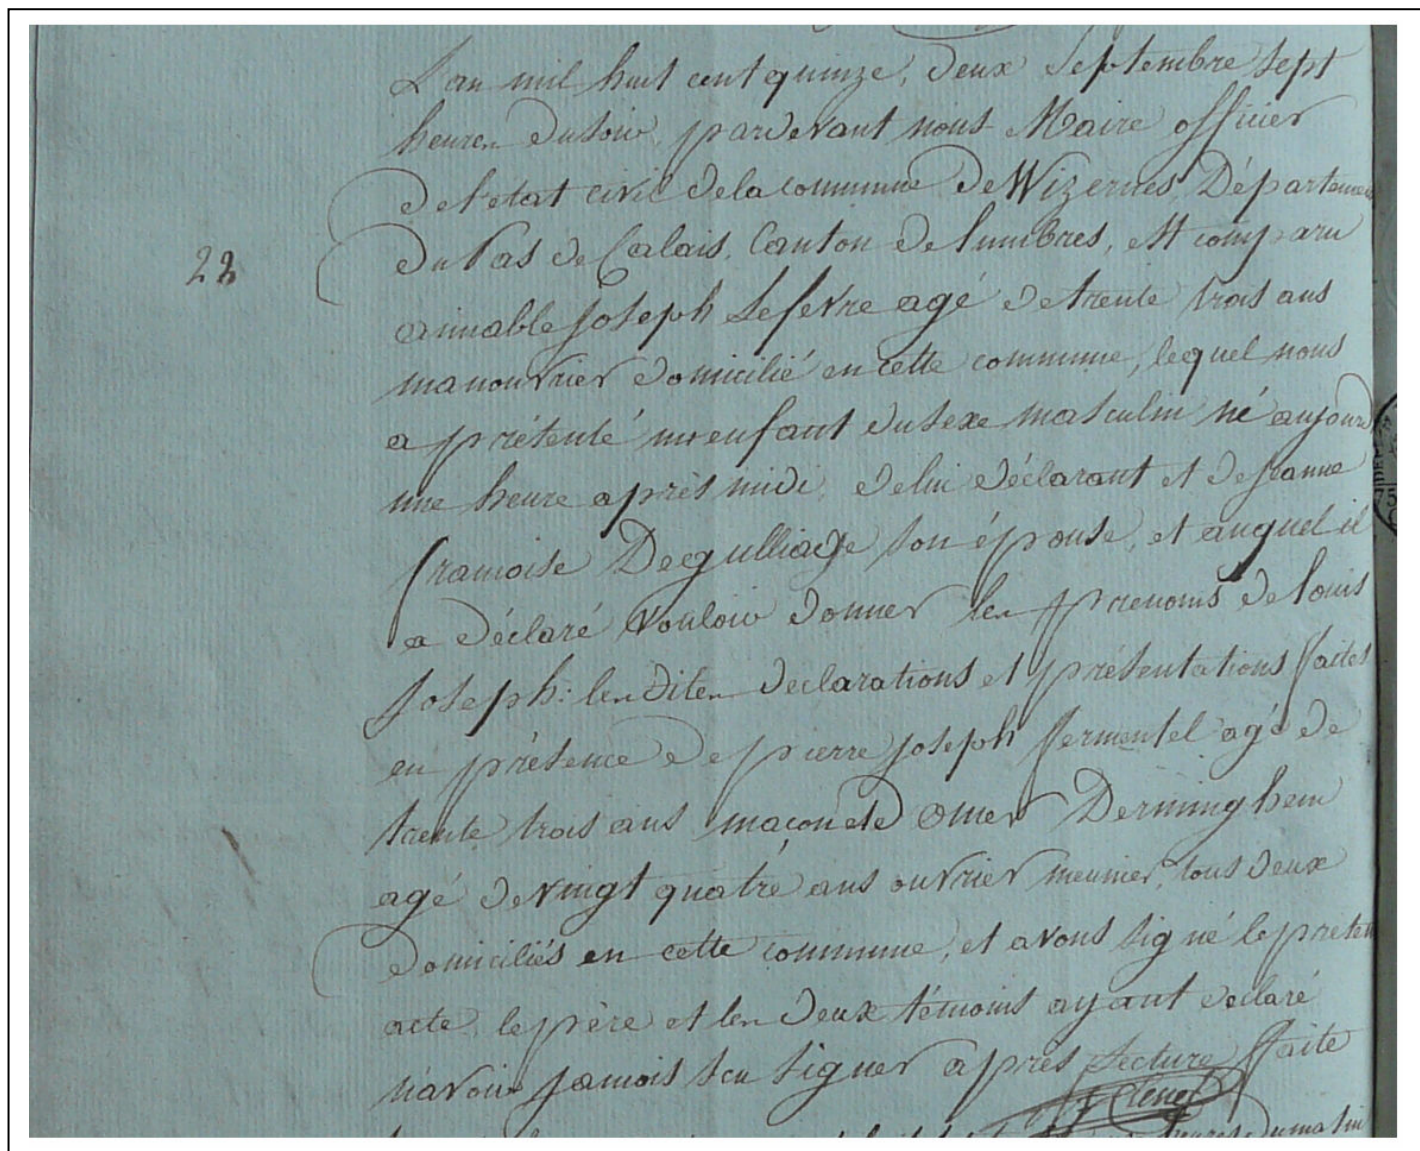 L'an mil huit cent quinze, deux Septembre Sept
heures du soir, pardevant nous Maire officier
de l'état civil de la commune de Wizernes, Départemen
du Pas de Calais, Canton de lumbres, est comparu
22
aimable Joseph Lefevre agé de trente trois ans
manouvrier domicilié en cette commune, lequel nous
a présenté un enfant du sexe masculin né aujourd
une heure après midi, de lui déclarant et de Jeanne
francoise Degulliage son épouse, et auquel il
a déclaré vouloir donner les prenoms de louis
Joseph: les dites declarations et présentations faites
en présence de pierre joseph fermentel agé de
trente trois ans maçon et d omer Derminghem
agé de vingt quatre ans ouvrier meunier, tous deux
domiciliés en cette commune, et avons signé le présen
acte, le père et les deux témoins ayant declaré
n'avoir jamais scu signer après lecture faite